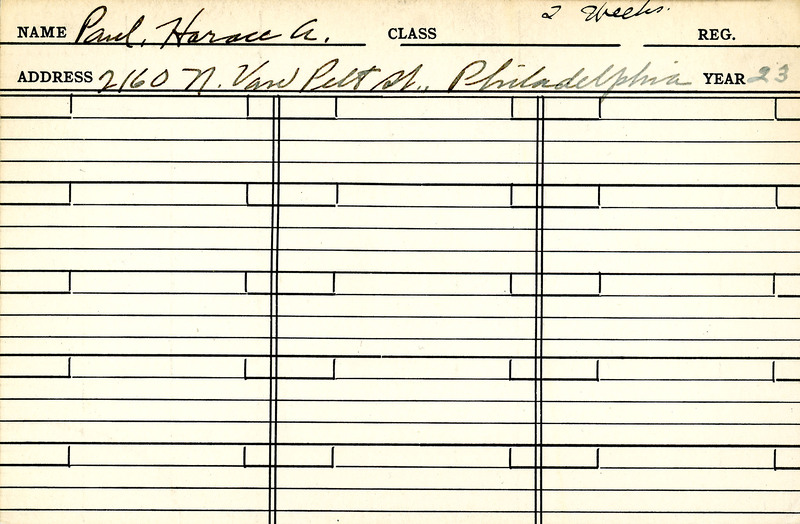 NAME Paul, Horace A. CLASS 2 Weeks. REG.
ADDRESS 2160 N. Van Pelt St., Philadelphia YEAR 23